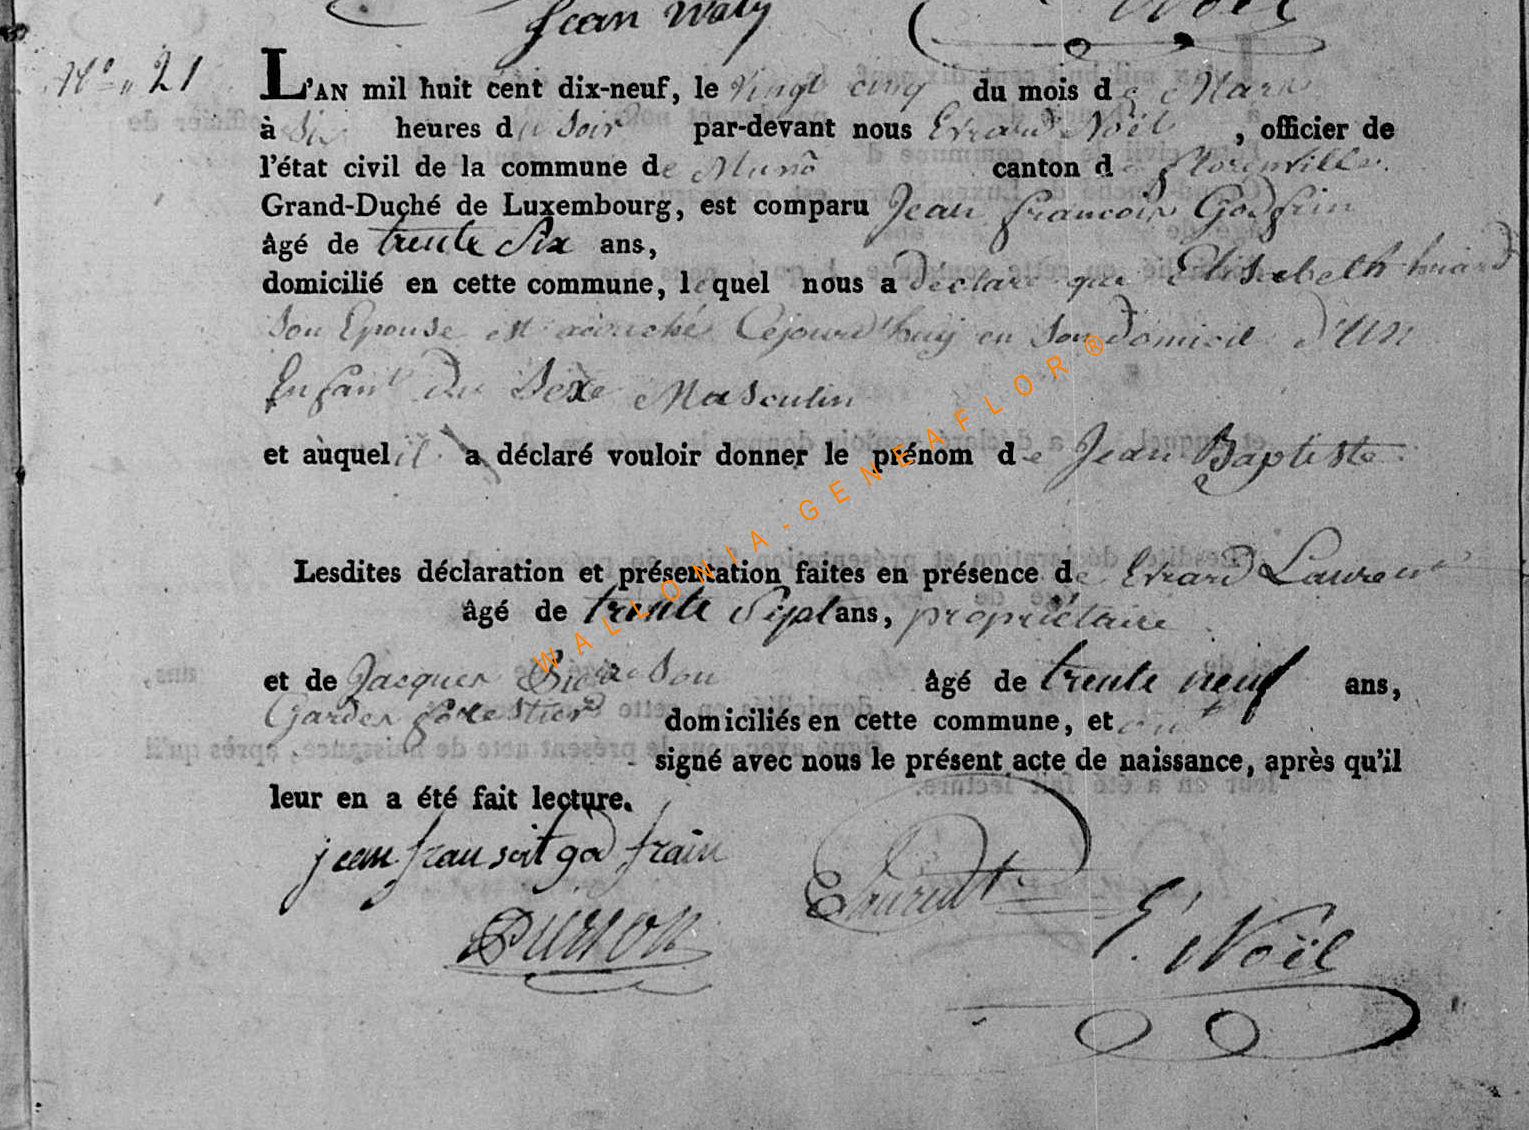 Jean Waly Noël
N° 21 L'AN mil huit cent dix-neuf, le Vingt cinq du mois de Mars
à Six heures du Soir par-devant nous Evrard Noël, officier de
l'état civil de la commune de Muno canton de Florenville
Grand-Duché de Luxembourg, est comparu Jean francois Godfrin
âgé de trente Six ans,
domicilié en cette commune, lequel nous a déclaré que Elisabeth huard
Son Epouse est acouché Cejourd'huy en Son domicil d'UN
Enfant du Sexe Masculin
et auquel il a déclaré vouloir donner le prénom de Jean Baptiste
Lesdites déclaration et présentation faites en présence de Evrard Laurent
âgé de trente Sept ans, propriétaire
et de Jacques âgé de trente neuf ans,
Garder forestier domiciliés en cette commune, et ont
signé avec nous le présent acte de naissance, après qu'il
leur en a été fait lecture.
jean fransoit god frain
E Laurent
E. Noël
WALLONIA-GENEAFLOR®